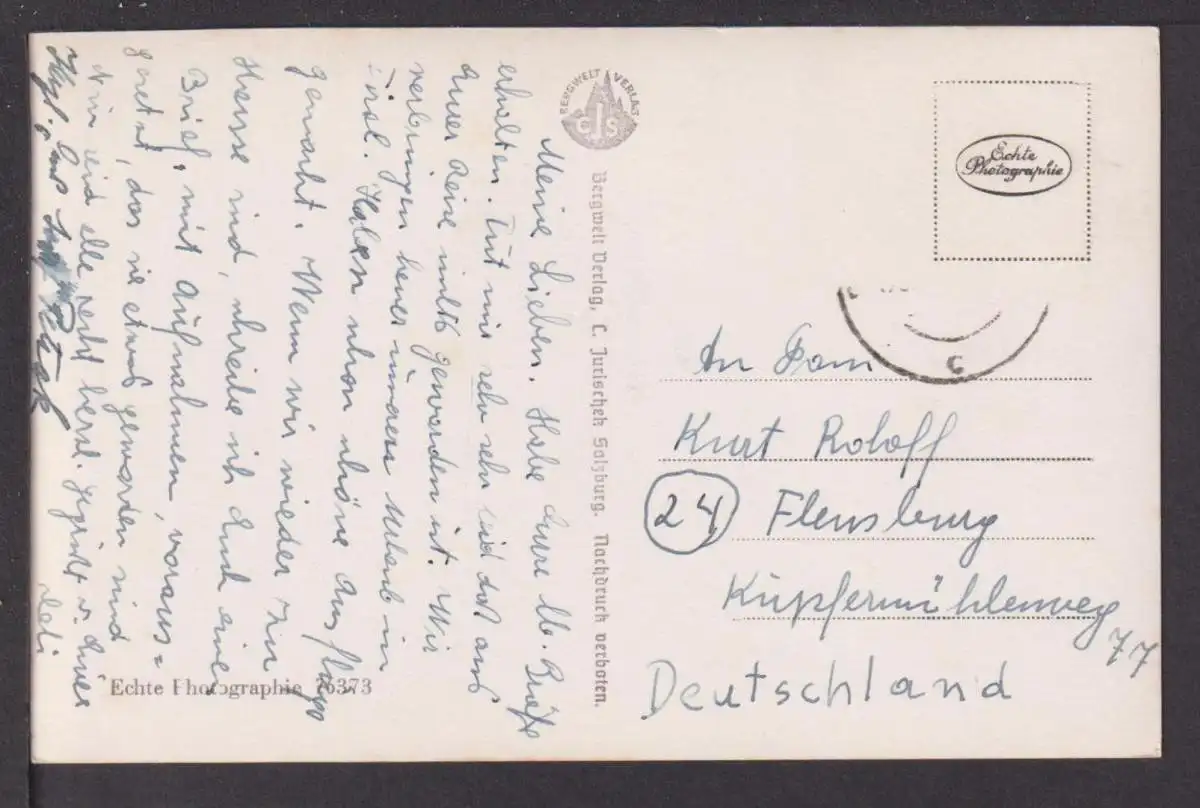 Meine Lieben. Habe Eure lb. Briefe
erhalten. Tut mir sehr sehr leid das aus
Eurer Reise nichts geworden ist. Wir
verbringen heuer unseren Urlaub in
Tirol. Haben schon schöne Ausflüge
gemacht. Wenn wir wieder zu
Hause sind, schreibe ich Euch einen
Brief, mit Aufnahmen, voraus=
gesetzt, das sie etwas geworden sind
Nun seid alle recht herzl. gegrüßt v. Eurer
Deli
BERGWELT VERLAG
C J S
Bergwelt Verlag, C. Jurischek Salzburg. Nachdruck verboten.
Echte Photographie 76373
Echte
Photographie
An Fam
Kurt Roloff
24 Flensburg
Kupfermühlenweg
77
Deutschland